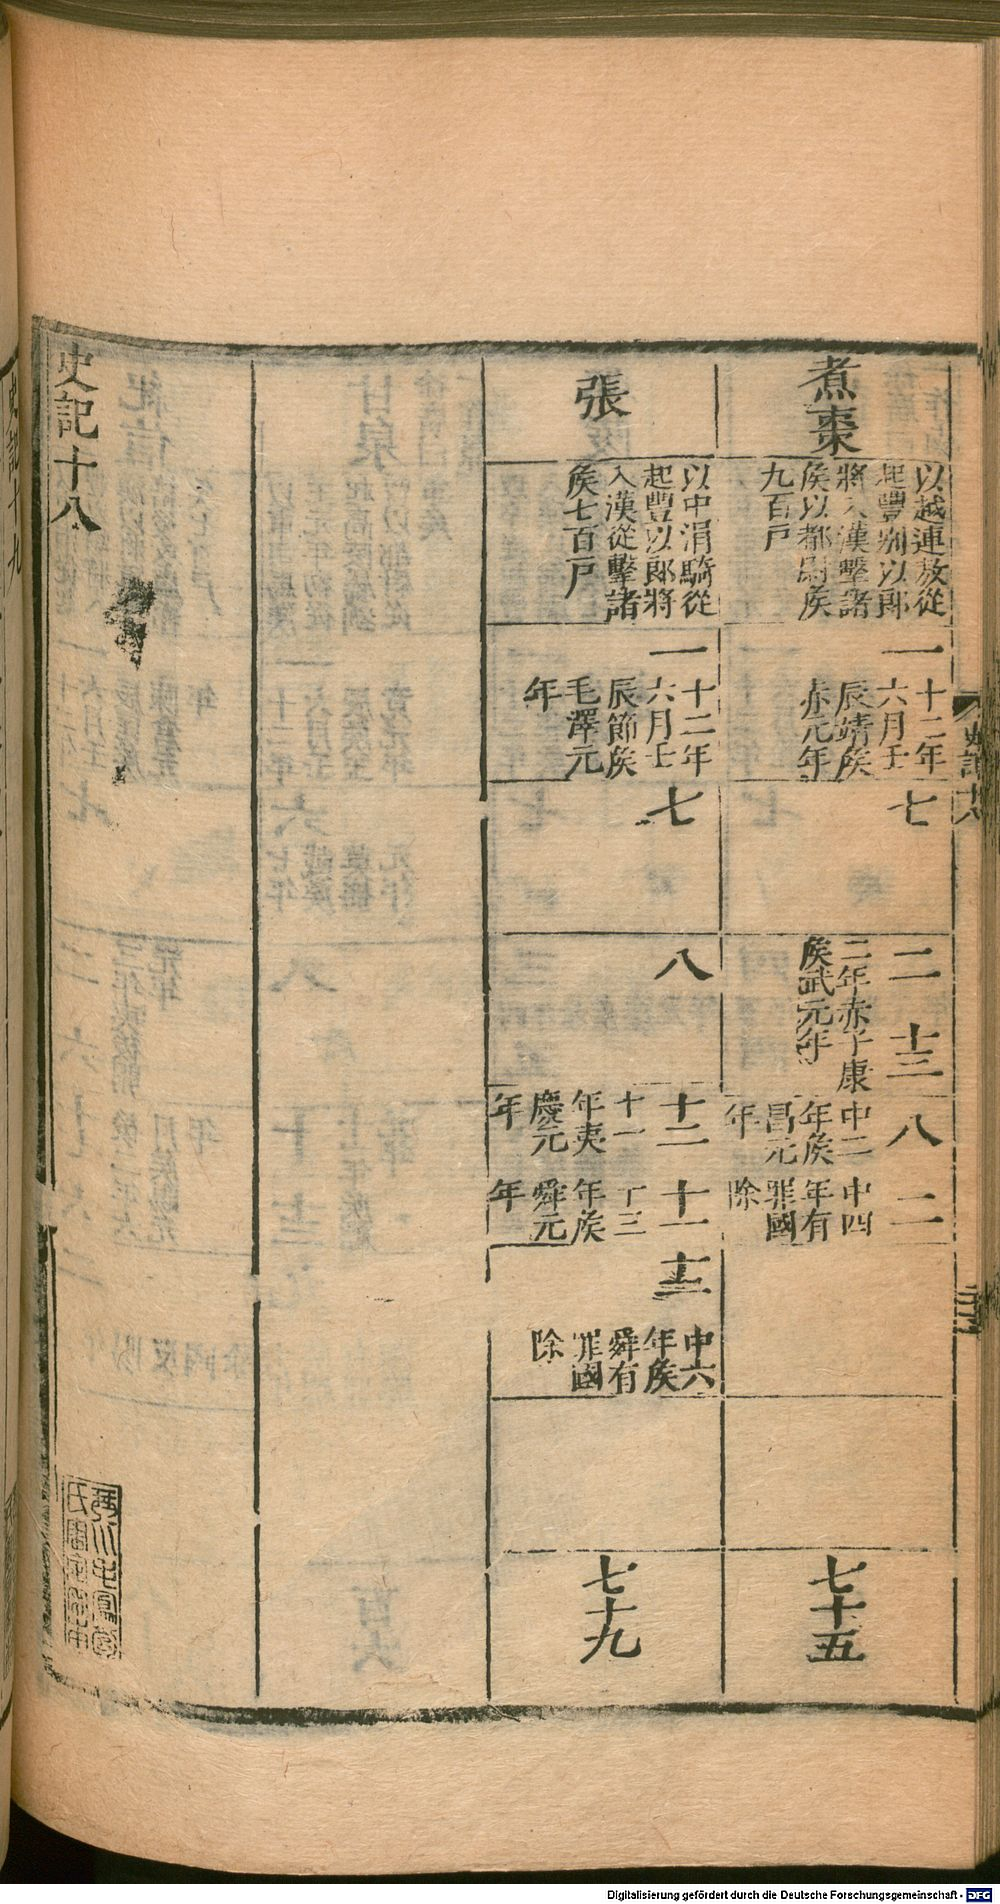 煮棗
以越連敖從
起豐別以郎
將入漢擊諸
矦以都尉矦
九百戸
一
十二年
六月壬
辰靖矦
赤元年
七
二
二年赤子康
矦武元年
十三
八
中二
年矦
昌元
年
二
中四
年有
罪國
除
七十五
張
以中涓騎從
起豐以郎將
入漢從擊諸
矦七百戸
一
十二年
六月壬
辰節矦
毛澤元
年
七
八
十二
十一
年夷
慶元
年
十一
十三
年矦
舜元
年
十二
中六
年矦
舜有
罪國
除
七十九
史記十八
Digitalisierung gefördert durch die Deutsche Forschungsgemeinschaft - DFG